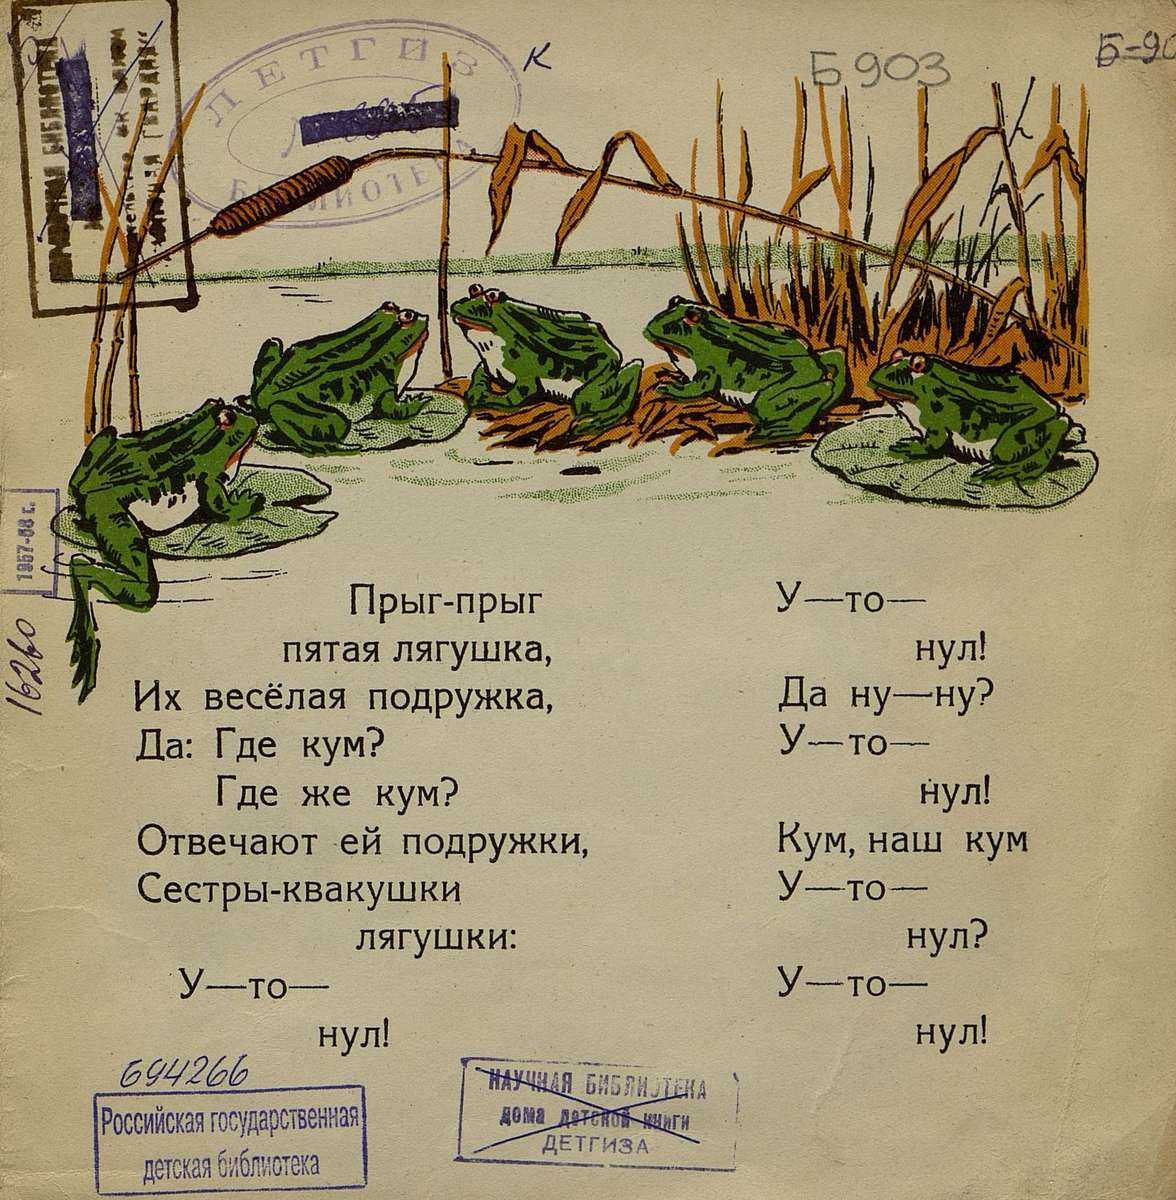 ДЕТГИЗ
БИБЛИОТЕКА
К
Б903
Б-90
1957-68 г.
16260
Прыг-прыг
пятая лягушка,
Их весёлая подружка,
Да: Где кум?
Где же кум?
Отвечают ей подружки,
Сестры-квакушки
лягушки:
У—то—
нул!
У—то—
нул!
Да ну—ну?
У—то—
нул!
Кум, наш кум
У—то—
нул?
У—то—
нул!
694266
Российская государственная
детская библиотека
НАУЧНАЯ БИБЛИОТЕКА
дома детской книги
ДЕТГИЗА